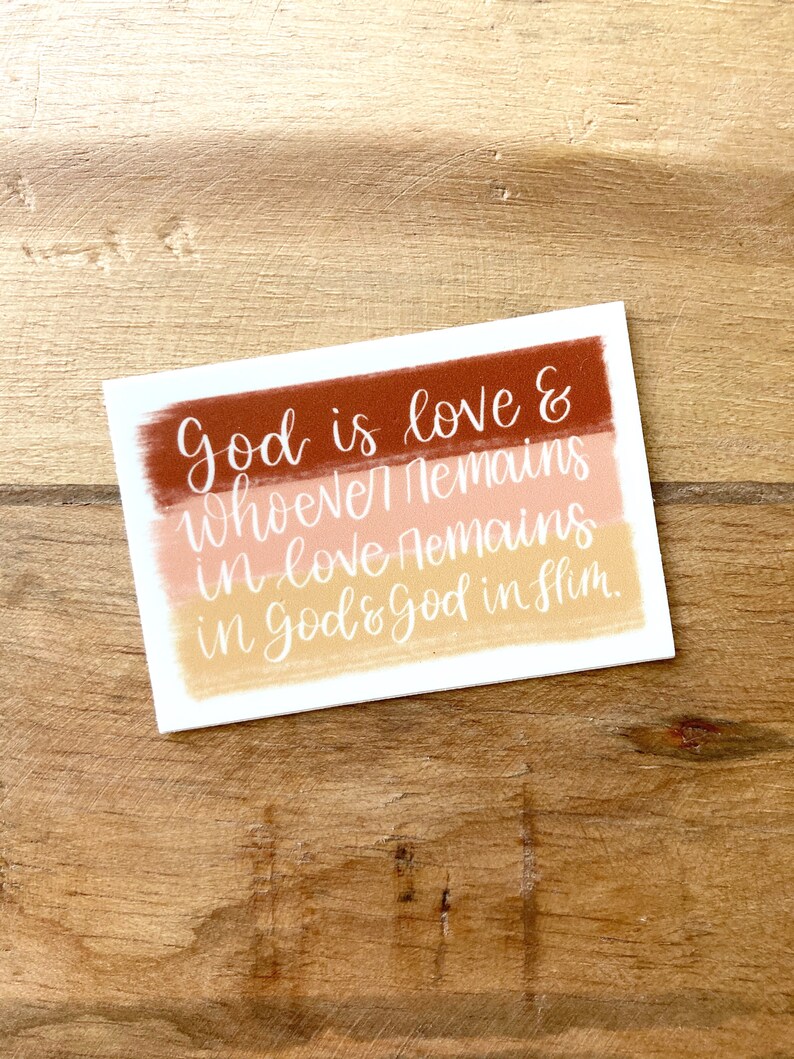 God is love &
whoever remains
in love remains
in God & God in Him.